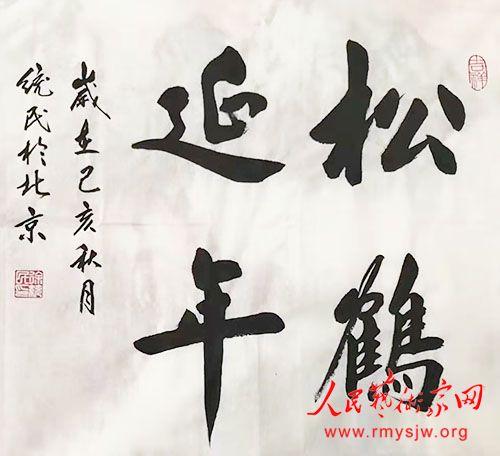 吉祥
松鶴
延年
歲在己亥秋月
统民於北京
人民藝術家网
www.rmysjw.org